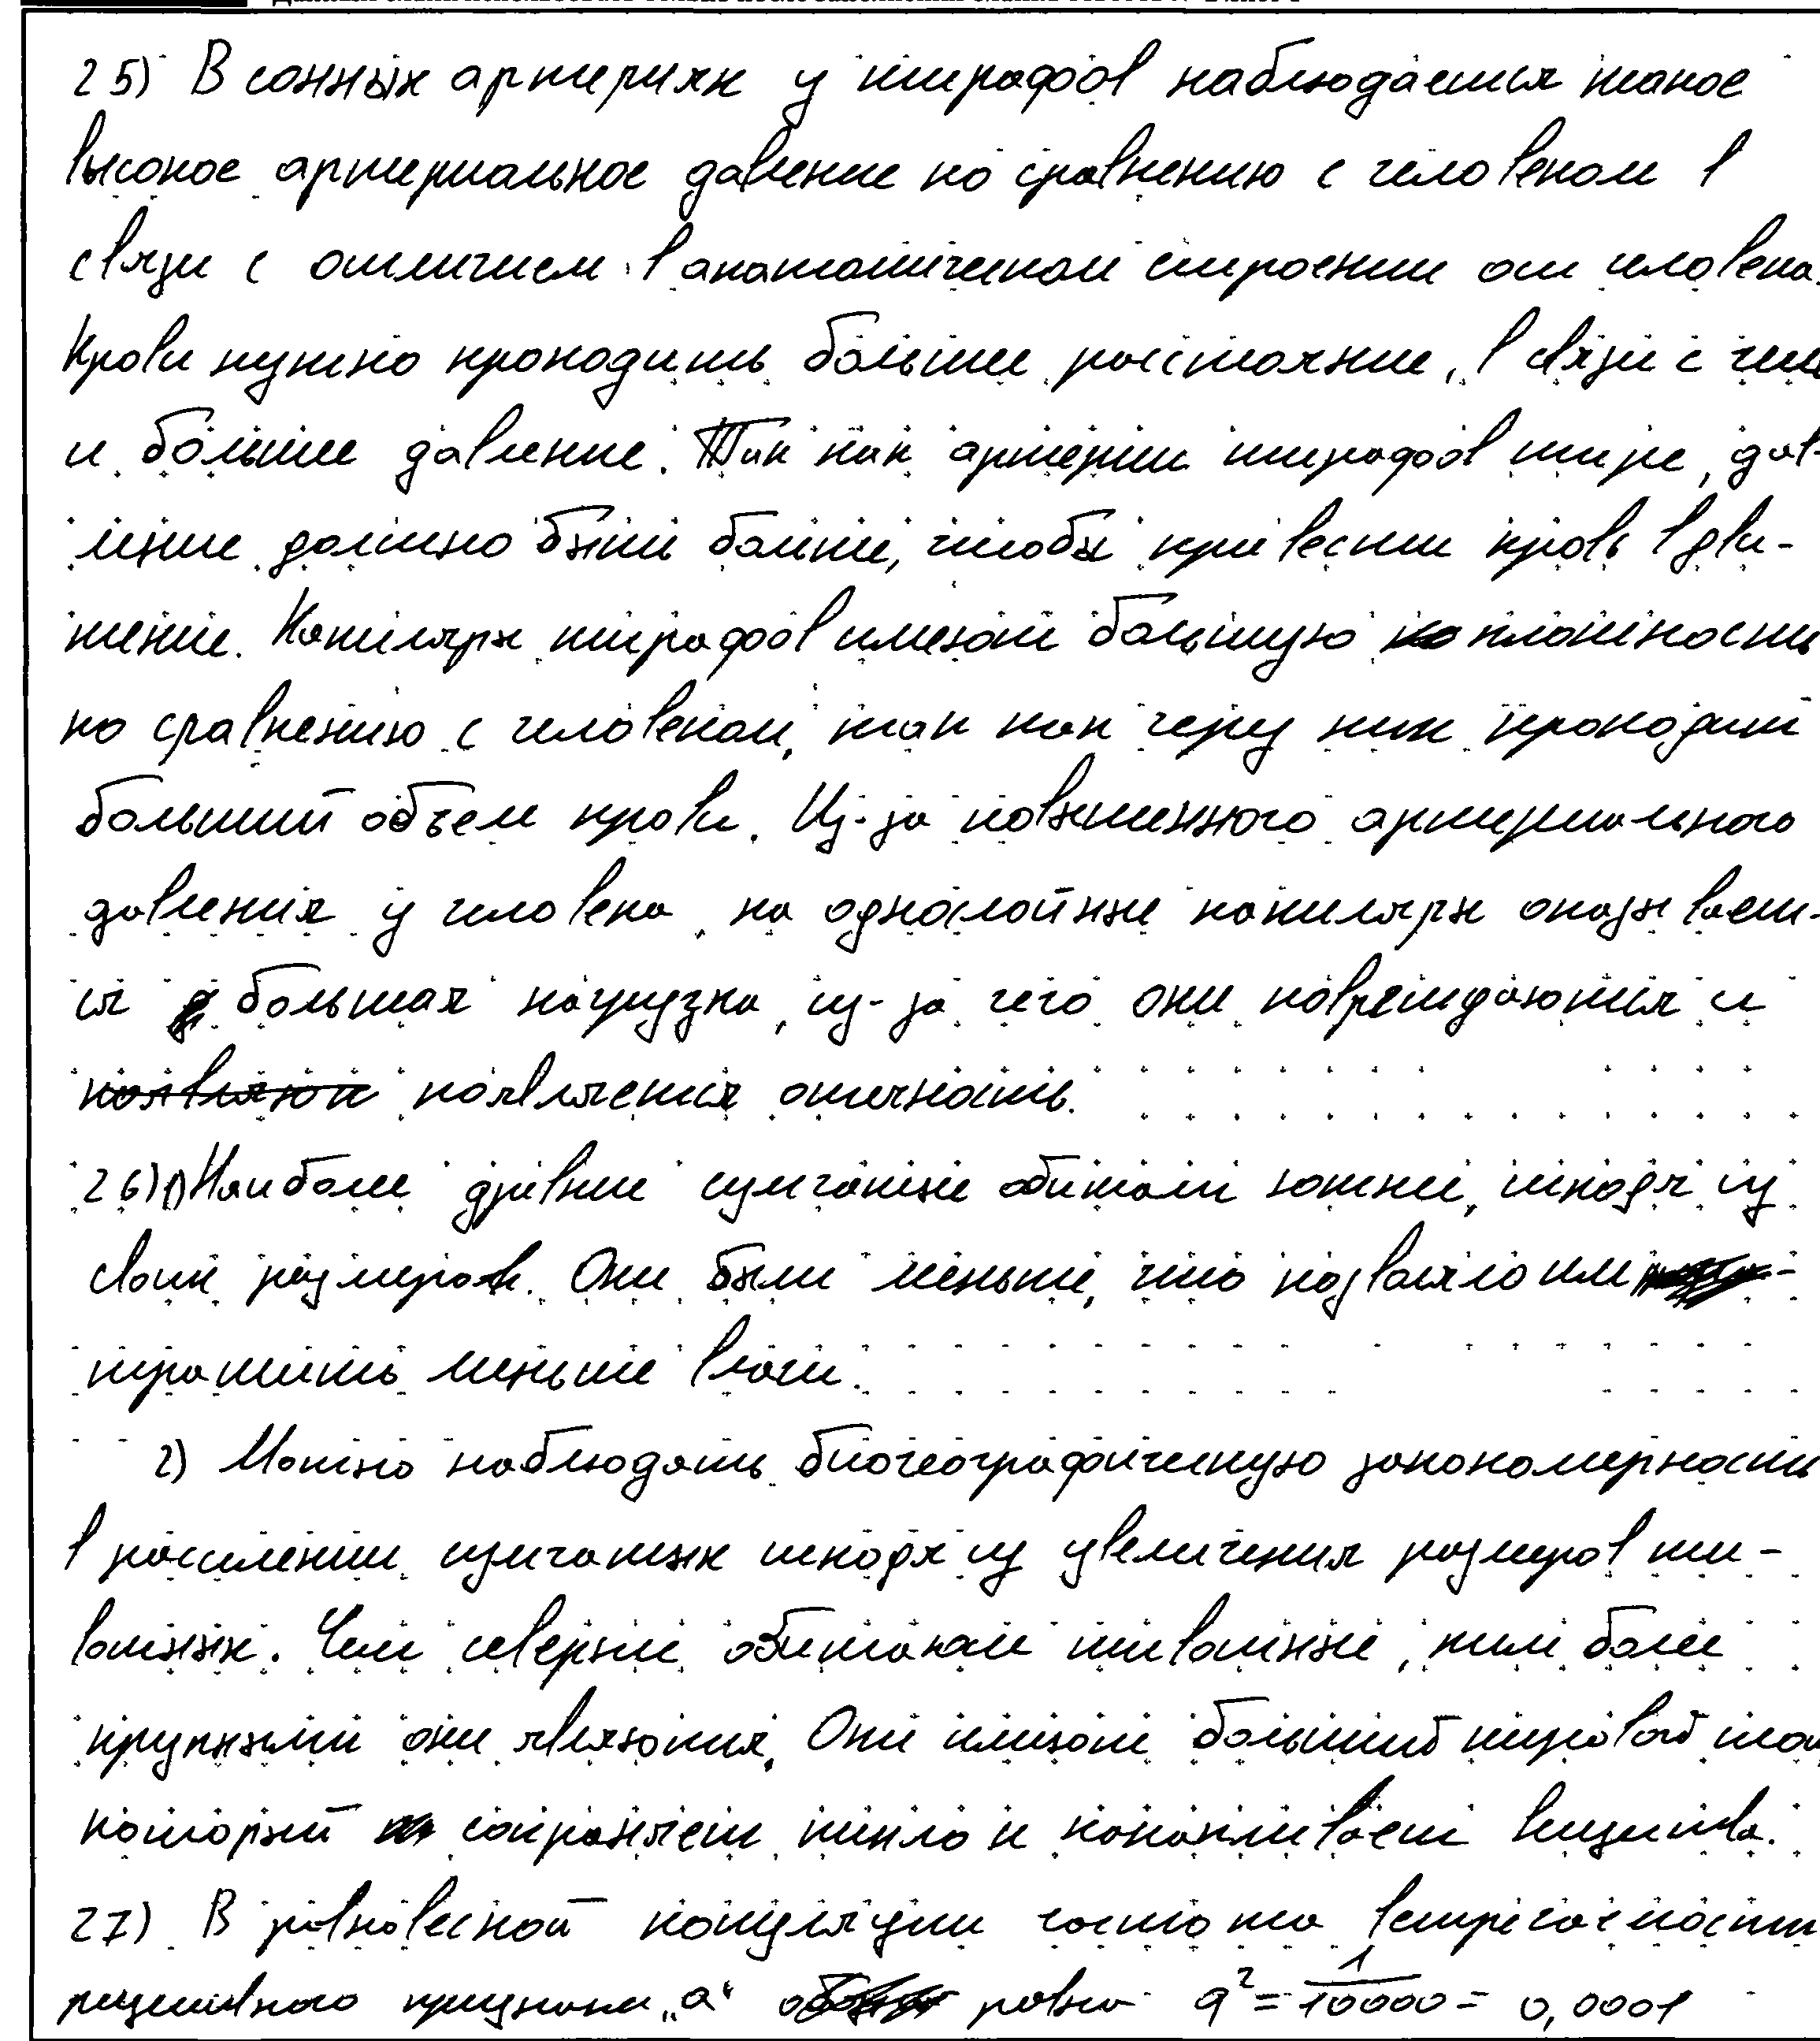 25) В сонных артериях у жирафов наблюдается такое
высокое артериальное давление по сравнению с человеком в
связи с отличием в анатомическом строении от человека.
Крови нужно проходить большее расстояние, в связи с чем
и большее давление. Так как артерии жирафов шире, дав-
ление должно быть больше, чтобы привести кровь в дви-
жение. Капиляры жирафов имеют большую плотность
по сравнению с человеком, так как через них проходит
больший объем крови. Из-за повышенного артериального
давления у человека, на однослойные капиляры оказывает-
ся большая нагрузка, из-за чего они повреждаются и
появляется отечность.
26) 1) Наиболее древние сумчатые обитали южнее, исходя из
своих размеров. Они были меньше, что позволяло им
тратить меньше влаги.
2) Можно наблюдать биогеографическую закономерность
в расселении сумчатых исходя из увеличения размеров жи-
вотных. Чем севернее обитают животные, тем более
крупными они являются. Они имеют больший жировой
который сохраняет тепло и накапливает вещества.
27) В равновесной популяции частота встречаемости
рецессивного признака „а“ равна q² = 1/10000 = 0,0001